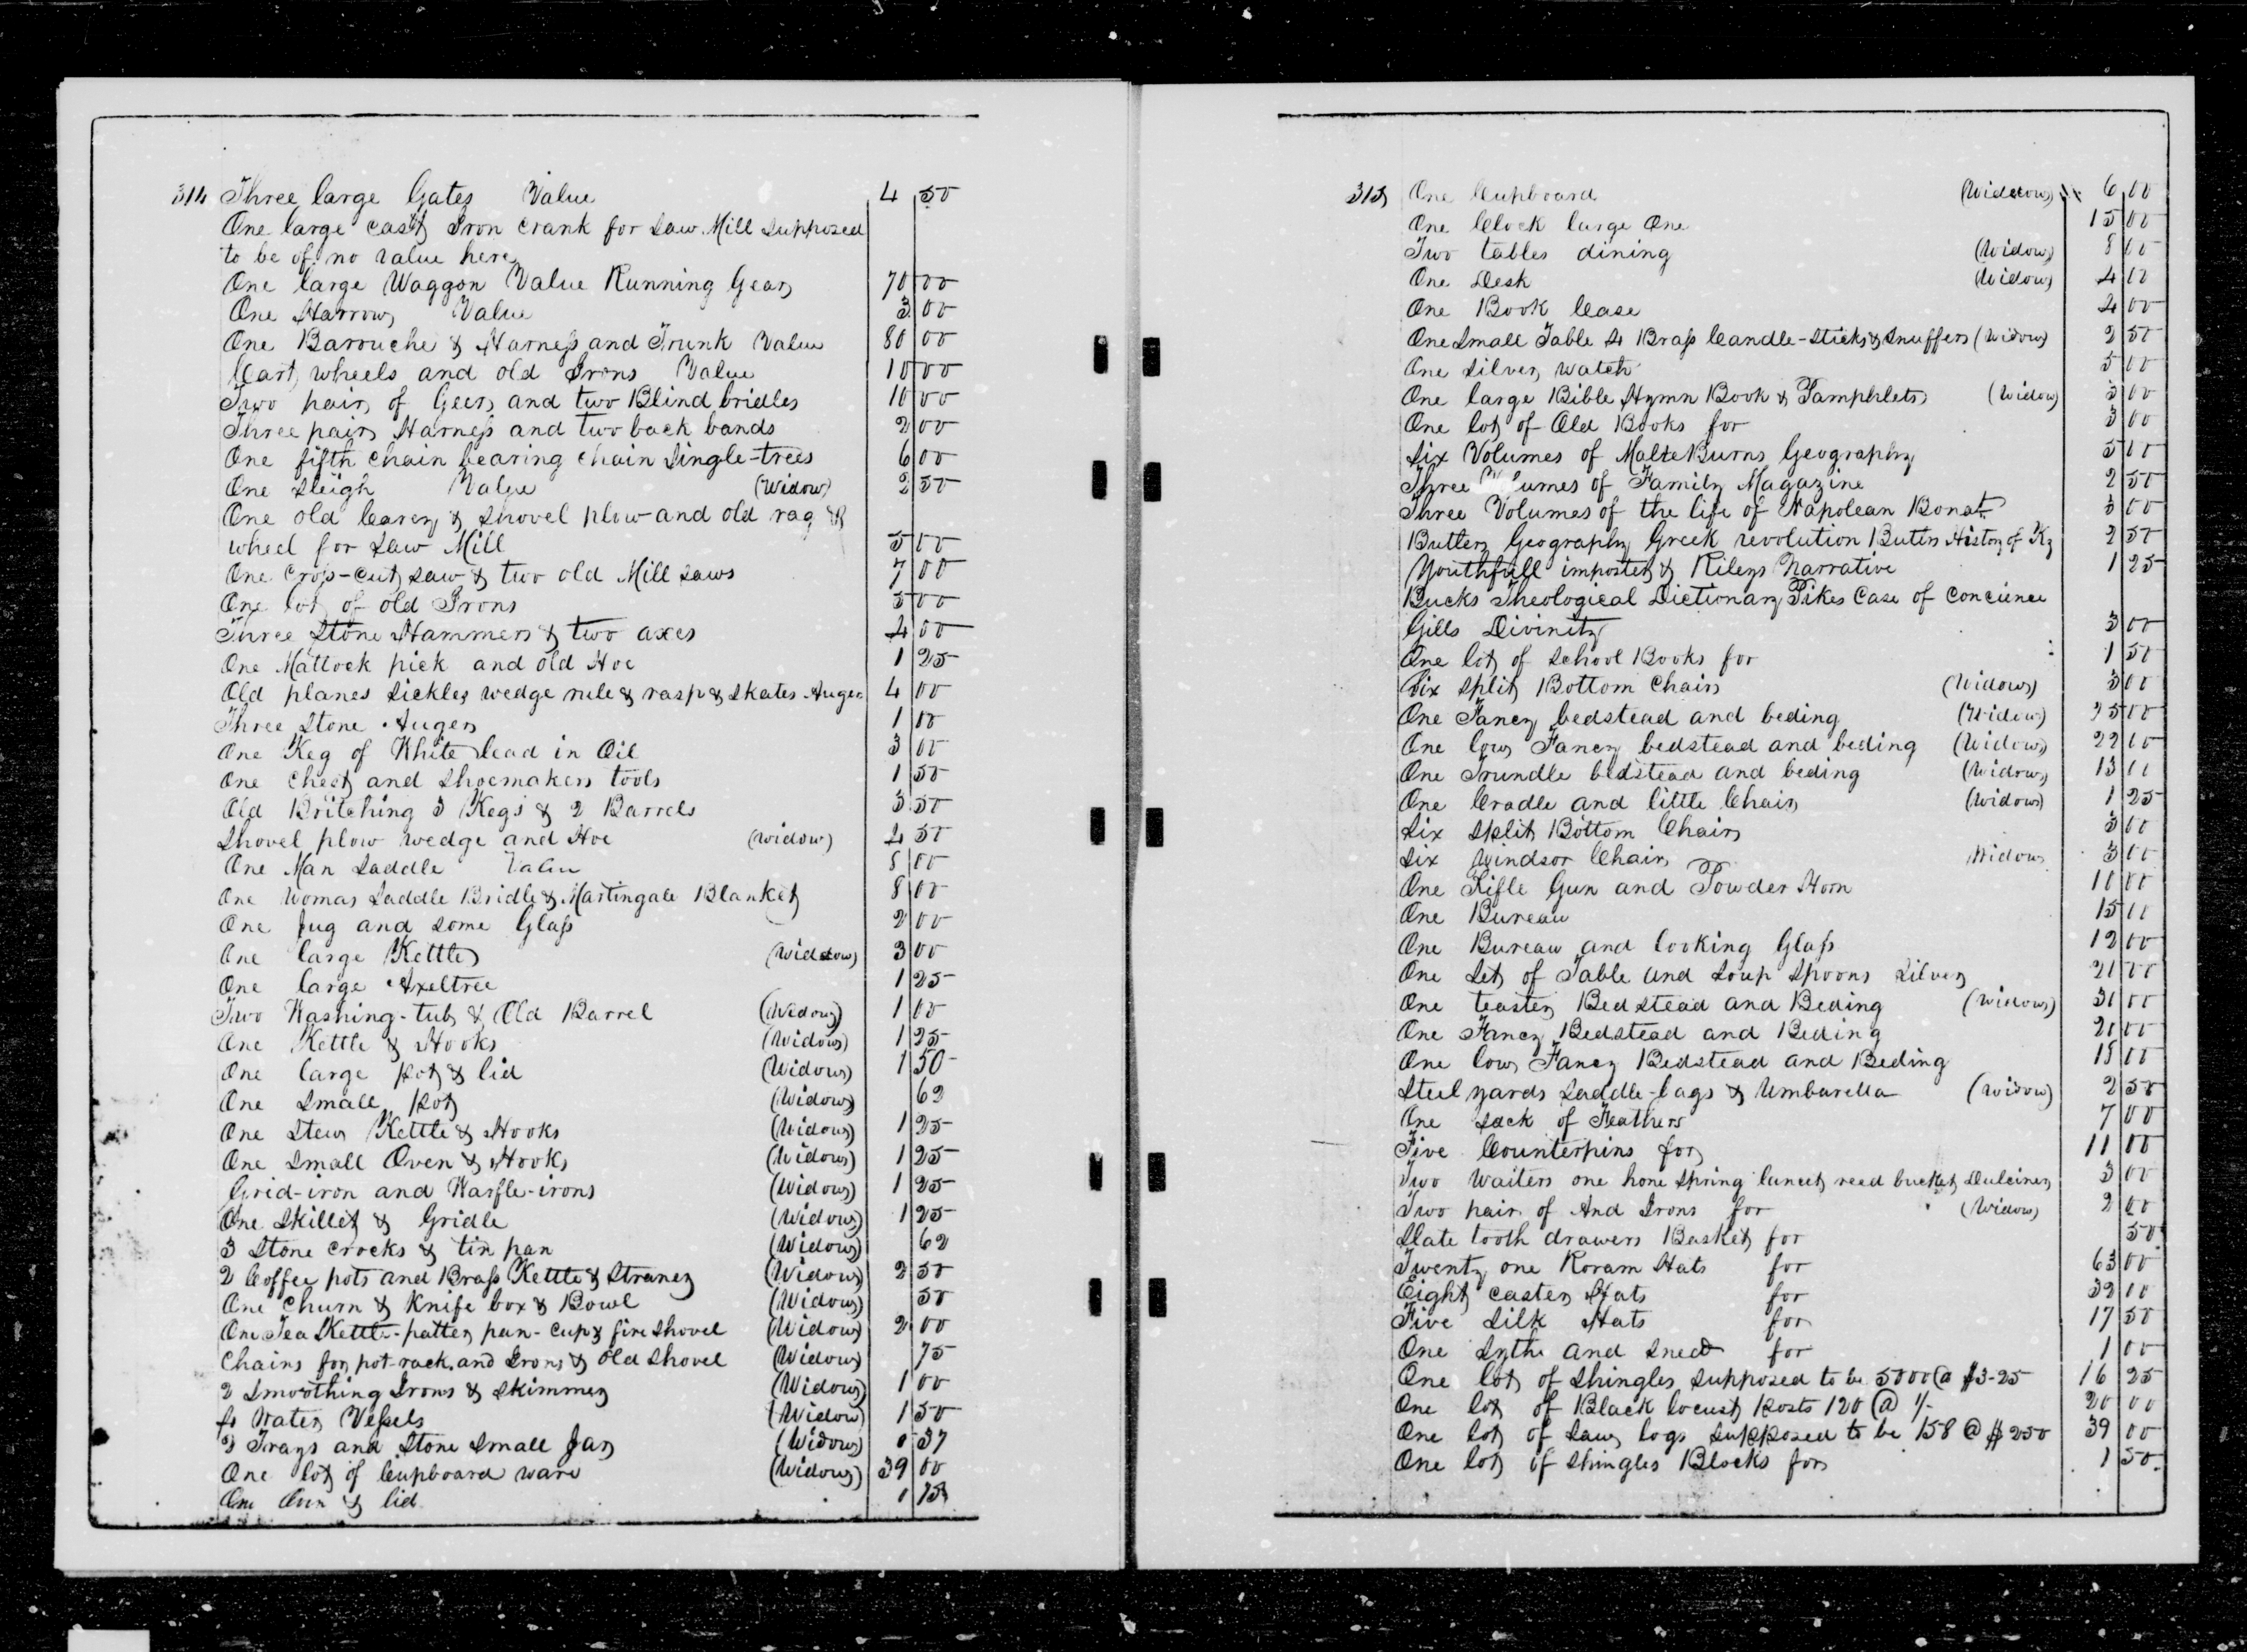 314 Three large Gates Value 4 50
One large cast Iron crank for Saw Mill Supposed
to be of no value here
One large Waggon Value Running Gear 70 00
One Harrow Value 3 00
One Barouche & Harness and Trunk Value 80 00
Cart wheels and old Irons Value 10 00
Two pair of Geers and two Blind bridles 10 00
Three pair Harness and two back bands 2 00
One fifth chain bearing chain Single-trees 6 00
One Sleigh Value (Widow) 2 50
One old Carey & Shovel plow and old rag
wheel for Saw Mill 5 00
One Cross-cut saw & two old Mill saws 7 00
One lot of old Irons 5 00
Three Stone Hammers & two axes 4 00
One Mattock pick and old Hoe 1 25
Old planes Sickles wedge rule & rasp & Skates Auger 4 00
Three Stone Augers 1 00
One Keg of White lead in Oil 3 00
One Chest and Shoemakers tools 1 50
Old Britching 3 Kegs & 2 Barrels 3 50
Shovel plow wedge and Hoe (widow) 4 50
One Man Saddle Value 5 00
One Womas Saddle Bridle & Martingale Blanket 8 00
One Jug and some Glass 2 00
One large Kettle (Widow) 3 00
One large Axeltree 1 25
Two Washing-tubs & Old Barrel (Widow) 1 00
One Kettle & Hooks (Widow) 1 25
One large pot & lid (Widow) 1 50
One Small pot (Widow) 62
One Stew Kettle & Hooks (Widow) 1 25
One Small Oven & Hooks (Widow) 1 25
Grid-iron and Waffle-irons (Widow) 1 25
One Skillet & Gridle (Widow) 1 25
3 Stone crocks & tin pan (Widow) 62
2 Coffee pots and Brass Kettle & Straner (Widow) 2 50
One Churn & Knife box & Bowl (Widow) 50
One Tea Kettle-patten pan-Cup & fire Shovel (Widow) 2 00
Chains for pot-rack and Irons & Old Shovel (Widow) 75
2 Smoothing Irons & Skimmer (Widow) 1 00
Water Vessels (Widow) 1 50
Trays and Stone Small Jar (Widow) 37
One lot of Cupboard ware (Widow) 39 00
One Oven & lid
315 One Cupboard (Widow) 6 00
One Clock large One 15 00
Two tables dining (Widow) 8 00
One Desk (Widow) 4 00
One Book Case 4 00
One Small Table 4 Brass Candle-Sticks & Snuffers (Widow) 2 50
One Silver watch 5 00
One large Bible Hymn Book & Pamphlets (Widow) 3 00
One lot of Old Books for 3 00
Six Volumes of MalteBurns Geography 5 00
Three Volumes of Family Magazine 2 50
Three Volumes of the life of Napolean Bonat. 3 00
Butlers Geography Greek revolution Butlrs History of Ky 2 50
Youthfull imposter & Rileys Narrative 1 25
Bucks Theological Dictionary Pikes Case of Concience
Gills Divinity 3 00
One lot of School Books for 1 50
Six Split Bottom Chairs (Widow) 3 00
One Fancy bedstead and beding (Widow) 25 00
One low Fancy bedstead and beding (Widow) 22 00
One Trundle bedstead and beding (Widow) 13 00
One Cradle and little Chair (Widow) 1 25
Six Split Bottom Chairs 3 00
Six Windsor Chairs Widow 3 00
One Rifle Gun and Powder Horn 10 00
One Bureau 15 00
One Bureau and looking Glass 12 00
One Set of Table and Soup Spoons Silver 20 00
One teaster Bedstead and Beding (Widow) 30 00
One Fancy Bedstead and Beding 20 00
One low Fancy Bedstead and Beding 15 00
Steelyards Saddle-bags & Umbarella (Widow) 2 50
One Sack of Feathers 7 00
Five Counterpins for 11 00
Two Waiters one hone Spring lancet reed bucket Dulcimer 3 00
Two pair of And Irons for (Widow) 2 00
Slate tooth drawers Basket for 50
Twenty one Roram Hats for 63 00
Eight caster Hats for 32 00
Five Silk Hats for 17 50
One Sythe and Sned for 1 00
One lot of Shingles Supposed to be 5000 @ $3-25 16 25
One lot of Black locust posts 120 @ 1/- 20 00
One lot of Saw logs Supposed to be 158 @ $250 39 00
One lot of Shingles Blocks for 1 50